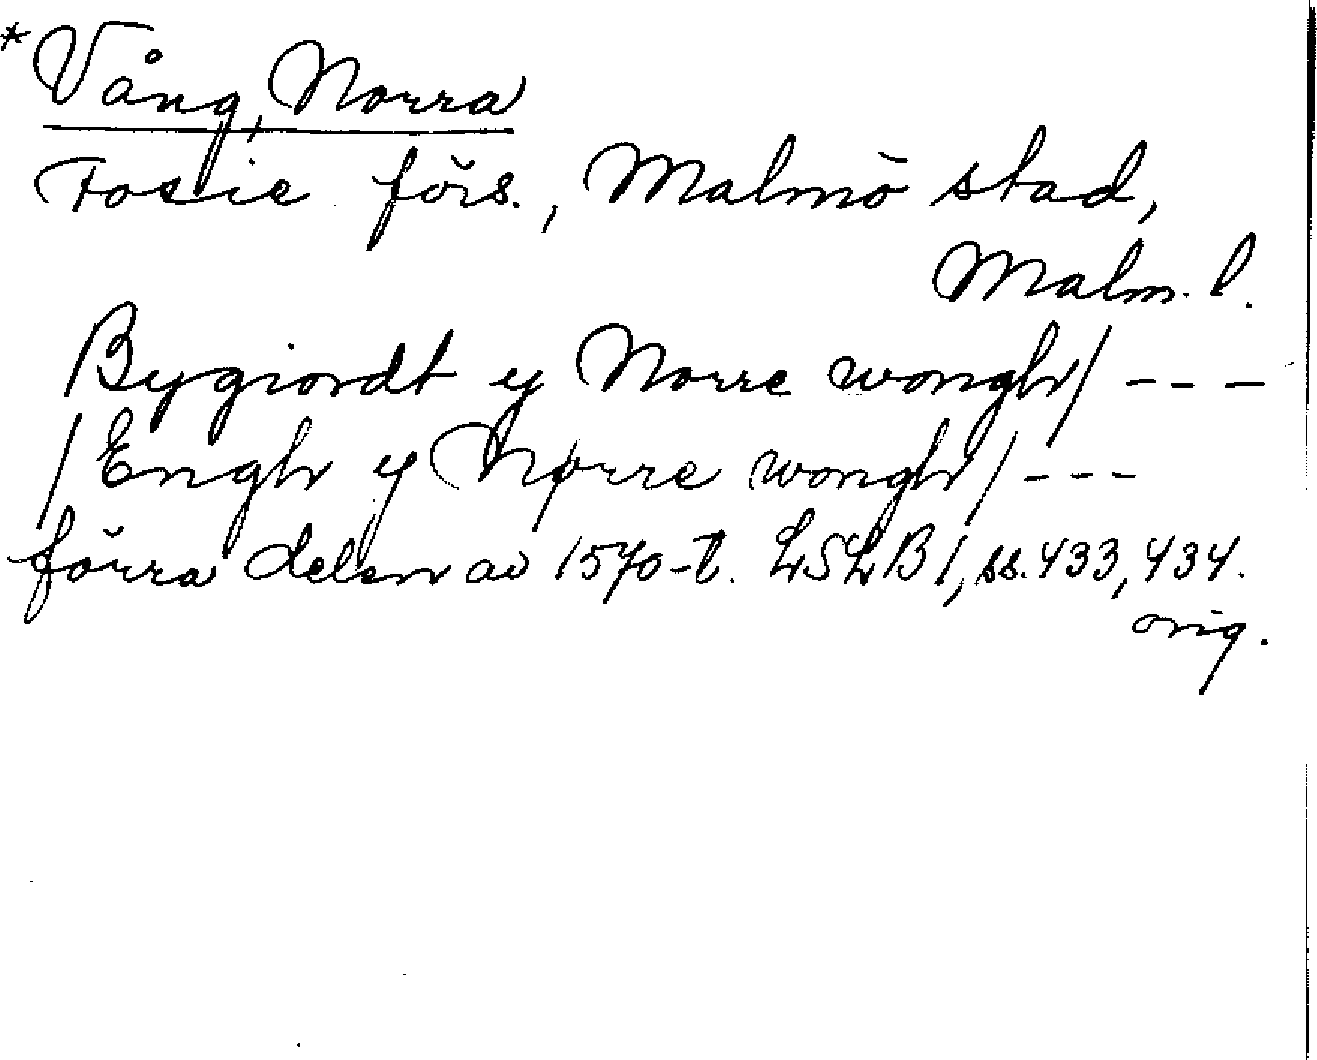 *Vång, Norra
Fosie förs., Malmö stad,
Malm. l.
Bygiordt y Norre wongh/ ---
/Engh y Nørre wongh/ ---
förra delen av 1570-t. LSLB 1, ss. 433, 434.
orig.